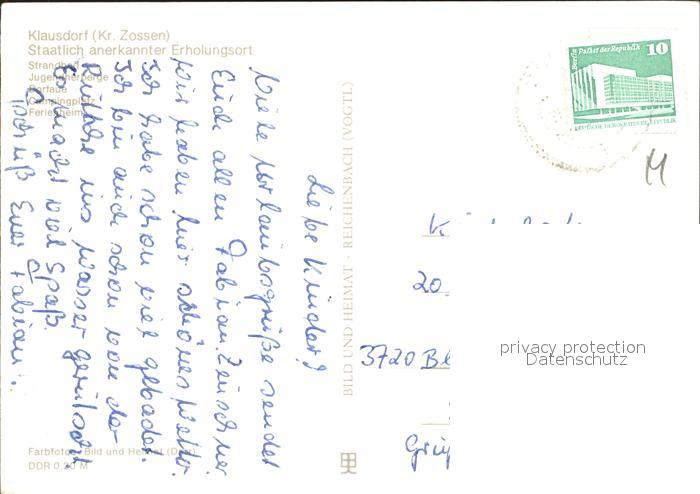 Klausdorf (Kr. Zossen)
Staatlich anerkannter Erholungsort
Strandbad
Jugendherberge
Dorfaue
Campingplatz
Ferienheim
Liebe Kinder!
Viele Urlaubsgrüße sendet
Euch allen Fabian Zeuschner
Wir haben hier schönes Wetter.
Ich habe schon viel gebadet.
Ich bin auch schon von der
Rutsche ins Wasser gerutscht
Es macht viel Spaß.
Tschüß Euer Fabian!
Farbfotos: Bild und Heimat
DDR 0,20 M
BILD UND HEIMAT · REICHENBACH (VOGTL)
Berlin Palast der Republik 10
DEUTSCHE DEMOKRATISCHE REPUBLIK
M
20
3720 Bl
privacy protection
Datenschutz